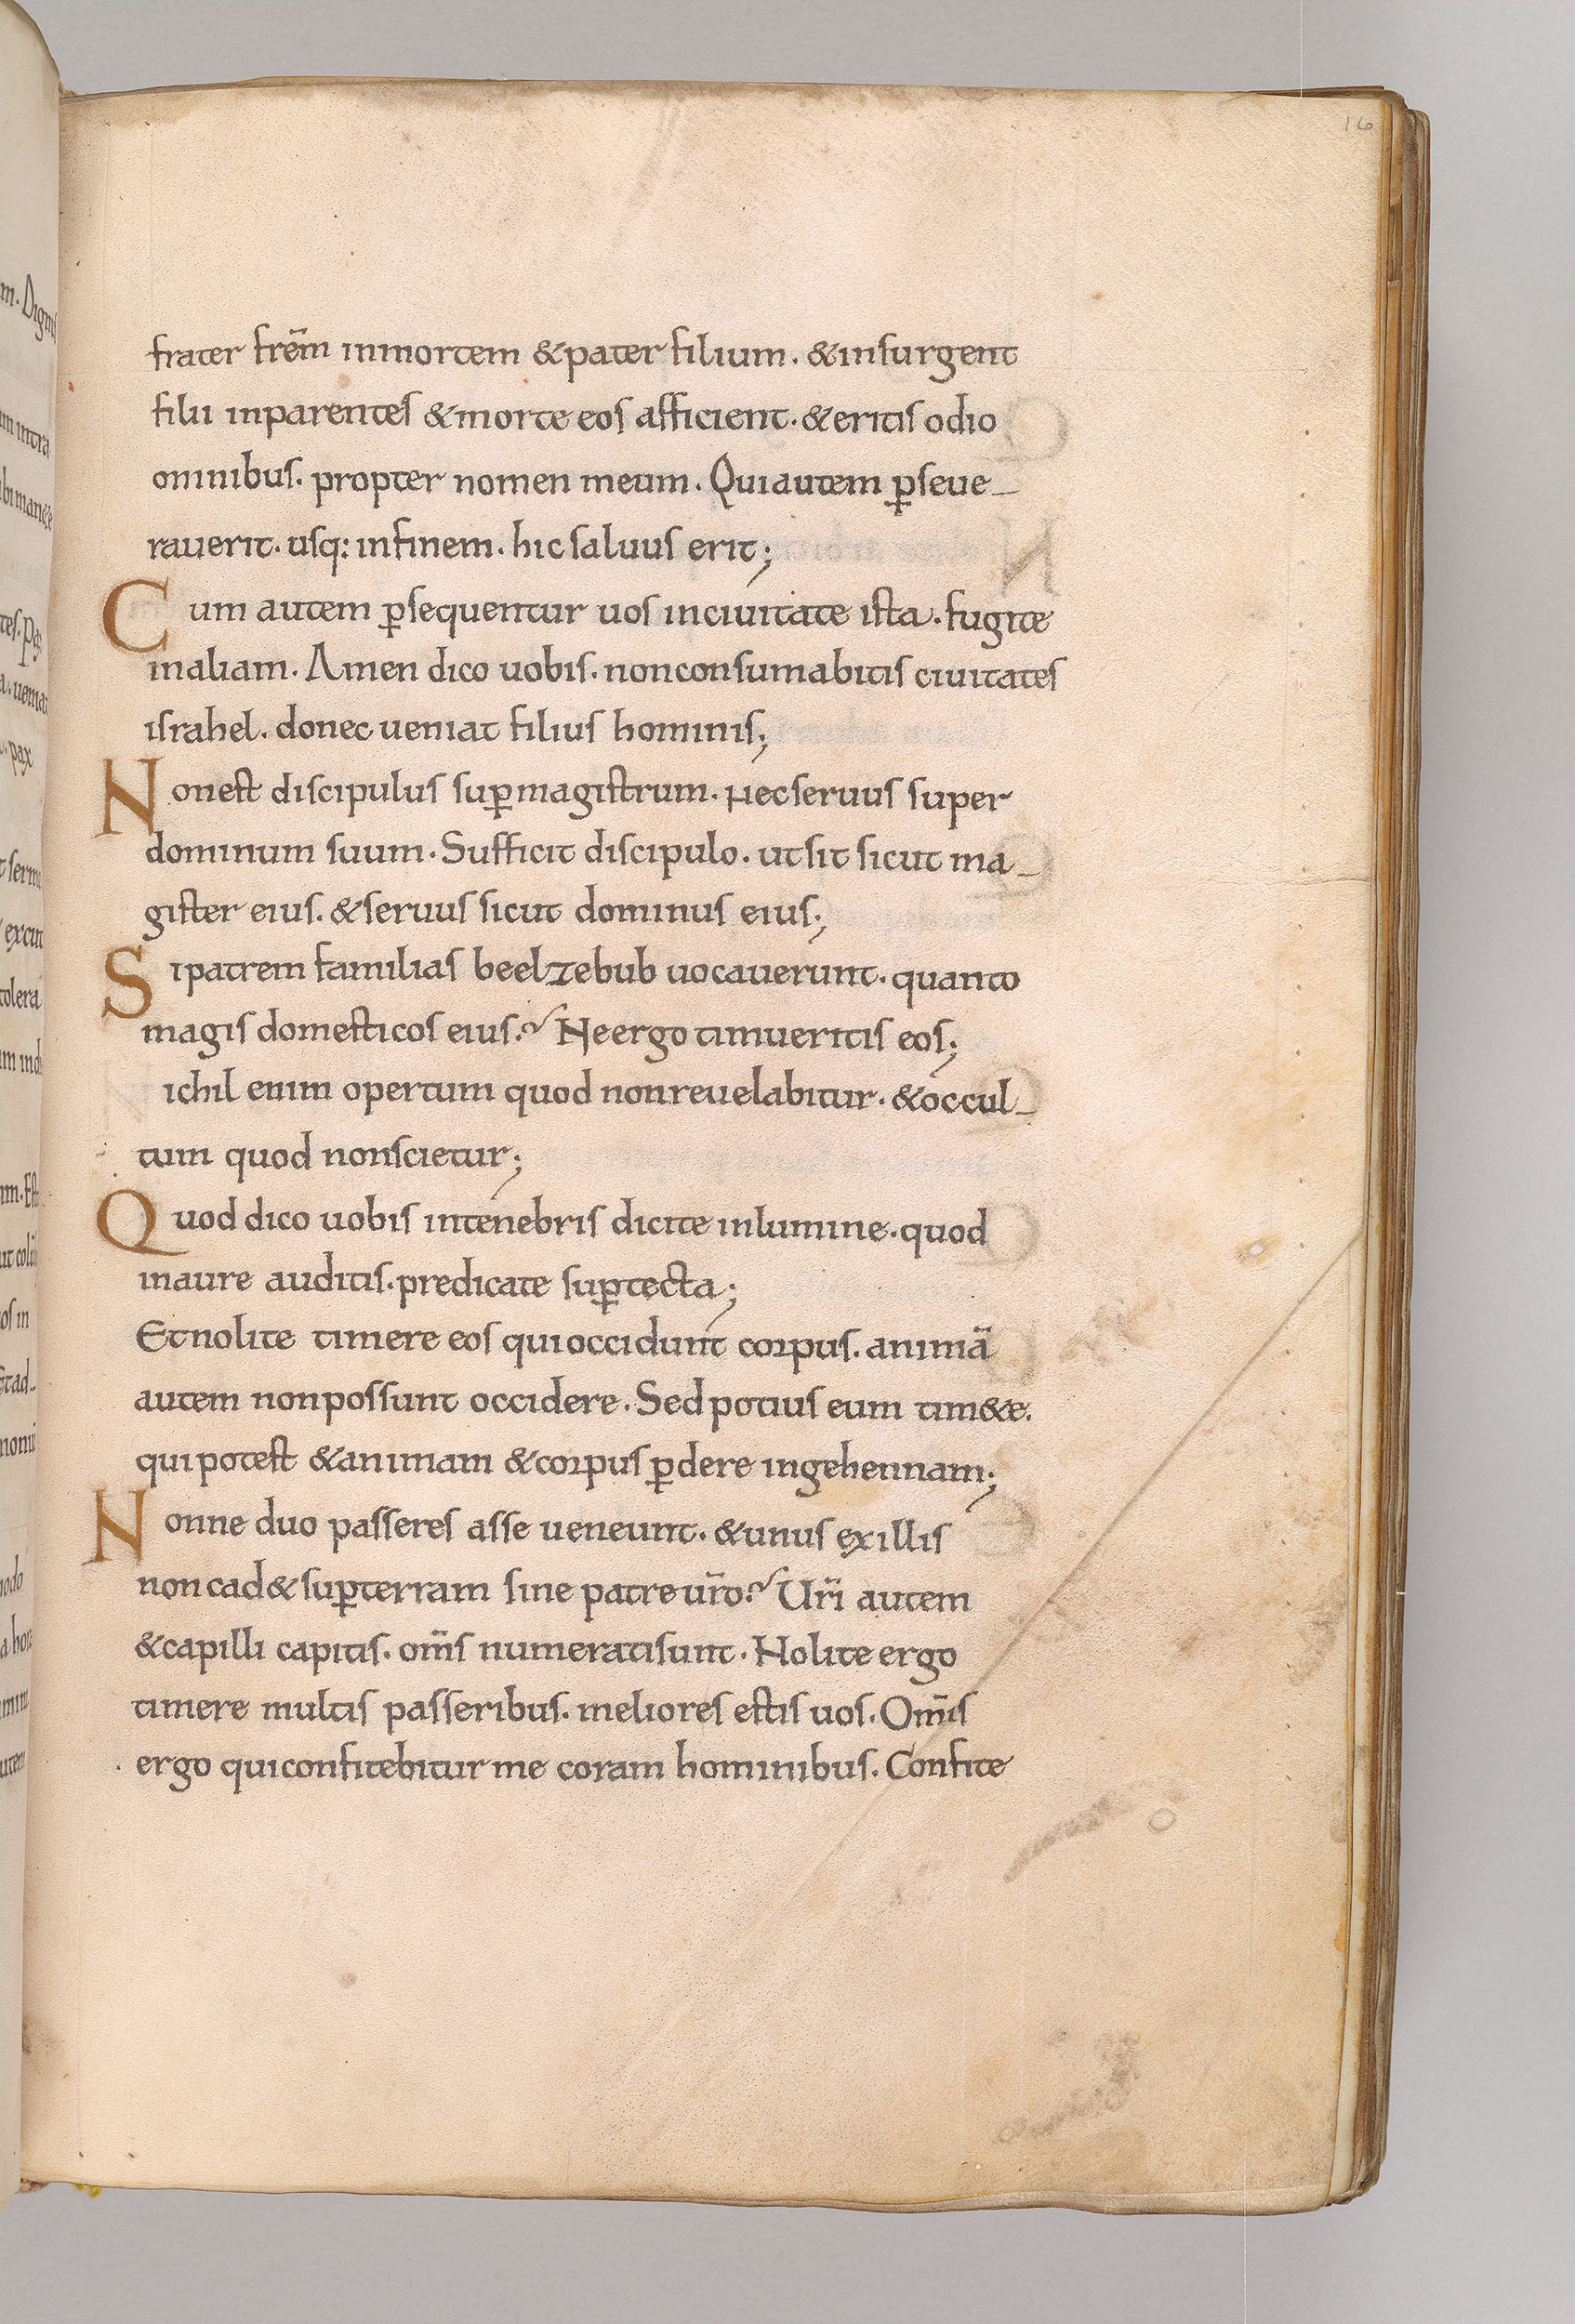 16
frater frēm inmortem & pater filium. & insurgent
filii inparentes & morte eos afficient. & eritis odio
omnibus. propter nomen meum. Qui autem ꝑseue-
rauerit. usq: infinem. hic saluus erit;
Cum autem ꝑsequentur uos inciuitate ista. fugite
inaliam. Amen dico uobis. non consumabitis ciuitates
israhel. donec ueniat filius hominis;
Non est discipulus suꝑ magistrum. nec seruus super
dominum suum. Sufficit discipulo. ut sit sicut ma-
gister eius. & seruus sicut dominus eius;
Si patrem familias beelzebub uocauerunt. quanto
magis domesticos eius? Ne ergo timueritis eos;
ichil enim opertum quod non reuelabitur. & occul-
tum quod non scietur;
Quod dico uobis intenebris dicite inlumine. quod
inaure auditis. predicate suꝑ tecta;
Et nolite timere eos qui occidunt corpus. animā
autem non possunt occidere. Sed potius eum tim&e.
qui potest & animam & corpus ꝑdere ingehennam;
Nonne duo passeres asse ueneunt. & unus ex illis
non cad& suꝑ terram sine patre ur̄o? Ur̄i autem
& capilli capitis. om̄s numerati sunt. Nolite ergo
timere multis passeribus. meliores estis uos. Om̄is
ergo qui confitebitur me coram hominibus. Confite